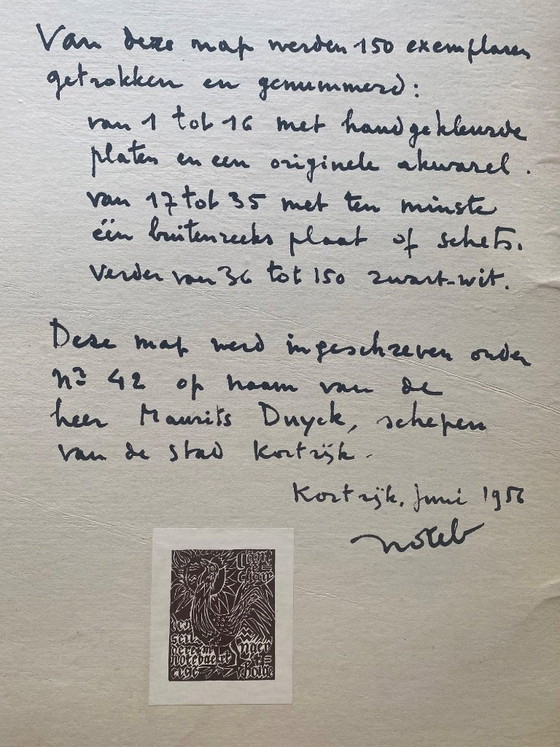 Van deze map werden 150 exemplaren
getrokken en genummerd:
van 1 tot 16 met handgekleurde
platen en een originele akwarel.
van 17 tot 35 met ten minste
één buitenreeks plaat of schets.
verder van 36 tot 150 zwart-wit.
Deze map werd ingeschreven onder
nr 42 op naam van de
heer Maurits Duyck, schepen
van de stad Kortrijk.
Kortrijk, juni 1956